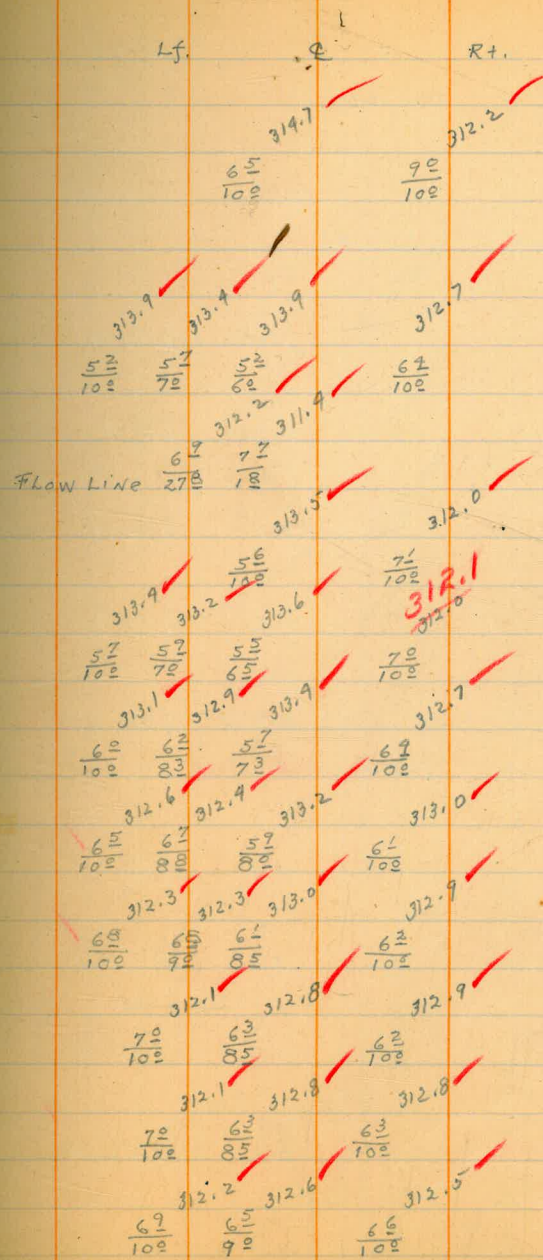 Lf. ℄ Rt.
314.7 312.2
6⁵/10⁰ 9⁰/10⁰
313.9 313.4 313.9 312.7
5²/10⁰ 5⁷/7⁰ 5²/6⁰ 6⁴/10⁰
312.2 311.4
FLOW LINE 6⁹/27⁸ 7⁷/1⁸
313.5 312.0
5⁶/10⁰ 7¹/10⁰
313.4 313.2 313.6 312.1 312.0
5⁷/10⁰ 5⁹/7⁰ 5⁵/6⁵ 7⁰/10⁰
313.1 312.9 313.4 312.7
6⁰/10⁰ 6²/8³ 5⁷/7³ 6⁴/10⁰
312.6 312.4 313.2 313.0
6⁵/10⁰ 6⁷/8⁸ 5⁹/8⁰ 6¹/10⁰
312.3 312.3 313.0 312.9
6⁸/10⁰ 6⁸/9⁰ 6¹/8⁵ 6²/10⁰
312.1 312.8 312.9
7⁰/10⁰ 6³/8⁵ 6²/10⁰
312.1 312.8 312.8
7⁰/10⁰ 6³/8⁵ 6³/10⁰
312.2 312.6 312.5
6⁹/10⁰ 6⁵/9⁰ 6⁶/10⁰